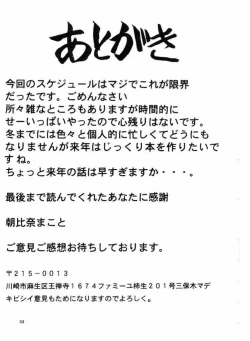 あとがき
今回のスケジュールはマジでこれが限界
だったです。ごめんなさい
所々雑なところもありますが時間的に
せーいっぱいやったので心残りはないです。
冬までには色々と個人的に忙しくてどうにも
なりませんが来年はじっくり本を作りたいで
すね。
ちょっと来年の話は早すぎますか・・・。
最後まで読んでくれたあなたに感謝
朝比奈まこと
ご意見ご感想お待ちしております。
〒215-0013
川崎市麻生区王禅寺1674ファミーユ柿生201号三保木マデ
キビシイ意見もためになりますのでよろしく。